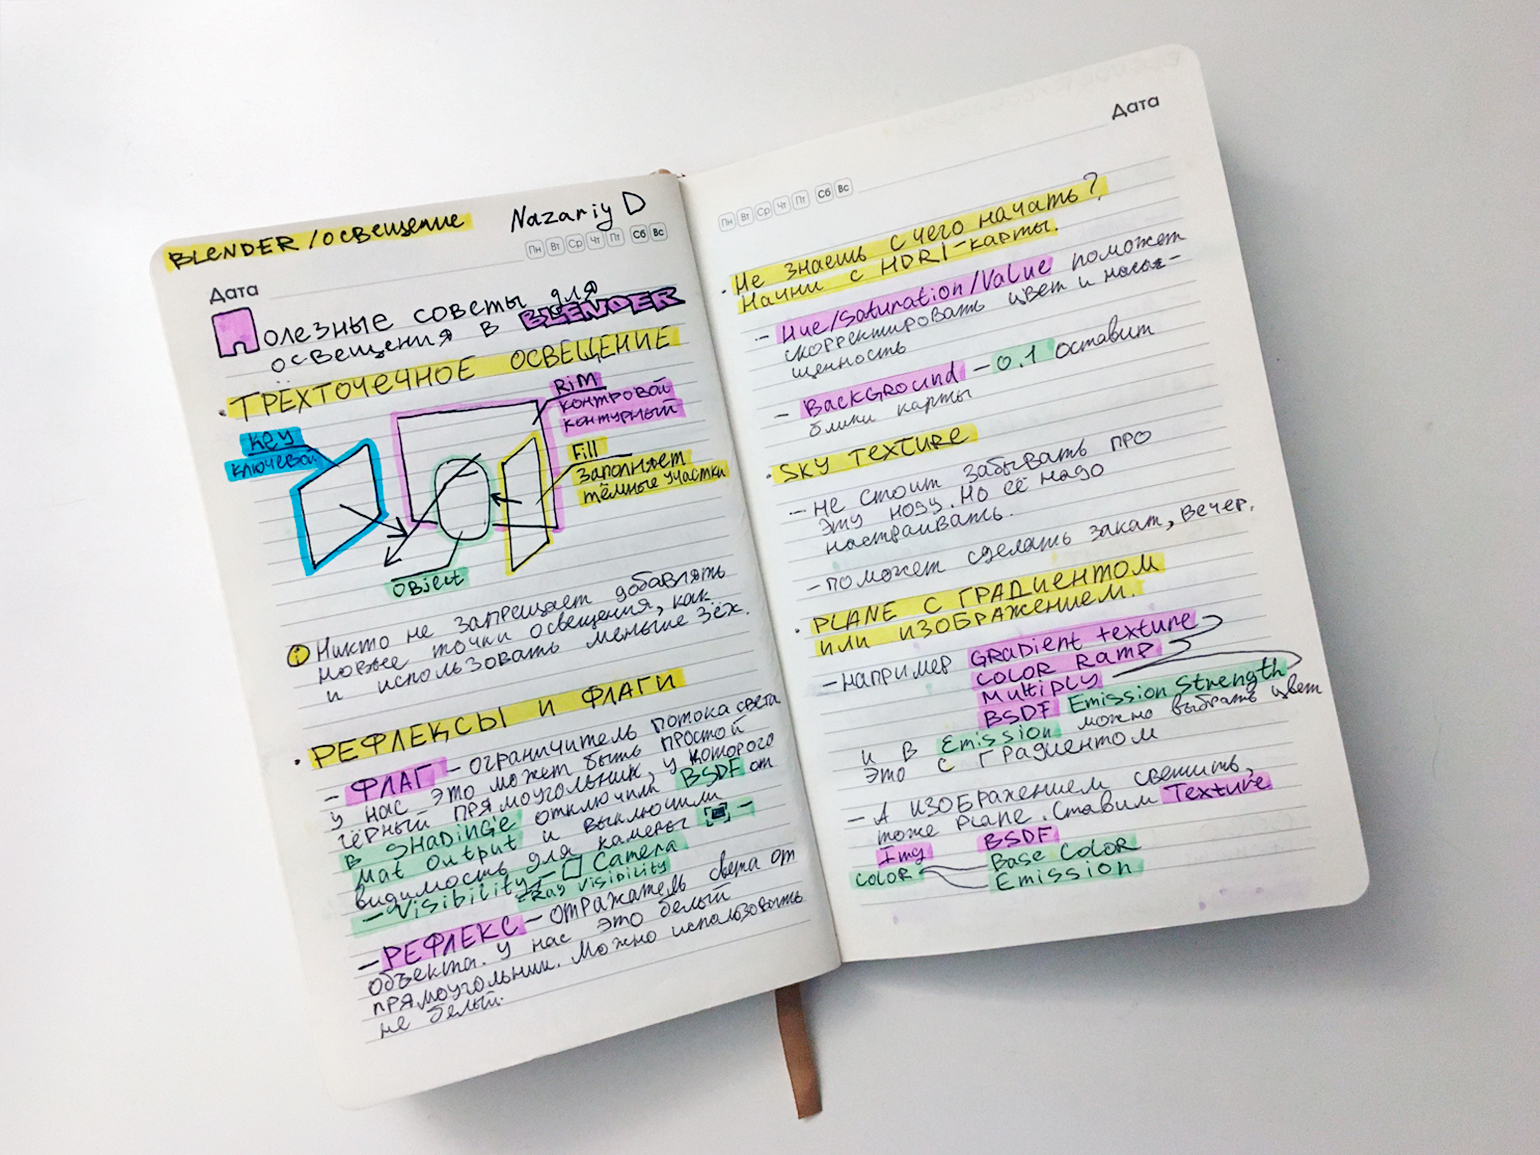 BLENDER / освещение
Nazariy D
Пн Вт Ср Чт Пт Сб Вс
Дата
Полезные советы для
освещения в BLENDER
• ТРЁХТОЧЕЧНОЕ ОСВЕЩЕНИЕ
Key
ключевой
RiM
контровой
контурный
Fill
заполняет
тёмные участки
Object
i Никто не запрещает добавлять
новые точки освещения, как
и использовать меньше 3ёх.
• РЕФЛЕКСЫ И ФЛАГИ
– ФЛАГ – ограничитель потока света
у нас это может быть простой
чёрный прямоугольник, у которого
в SHADiNG'e отключили BSDF от
Mat Output и выключили
видимость для камеры –
– Visibility – Camera
Ray Visibility
– РЕФЛЕКС – отражатель света от
объекта. У нас это белый
прямоугольник. Можно использовать
не белый.
Дата
Пн Вт Ср Чт Пт Сб Вс
• Не знаешь с чего начать?
Начни с HDRI-карты.
– Hue/Saturation/Value поможет
скорректировать цвет и насы-
щенность
– BackGround – 0.1 оставит
блики карты
• SKY TEXTURE
– не стоит забывать про
эту ноду. Но её надо
настраивать.
– поможет сделать закат, вечер.
• PLANE С ГРАДИЕНТОМ
ИЛИ ИЗОБРАЖЕНИЕМ.
– например GRADient texture
COLOR RAMP
Multiply
BSDF Emission Strength
и в Emission можно выбрать цвет
это с градиентом
– А изображением светить,
тоже Plane. Ставим Texture
Img BSDF
COLOR Base Color
Emission